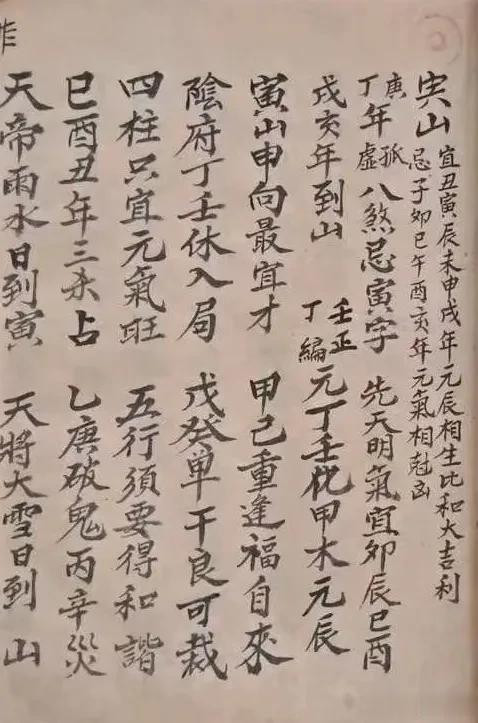 寅山 宜丑寅辰未申戌年元辰相生比和大吉利
忌子卯巳午酉亥年元氣相尅凶
庚丁年孤虛八煞忌寅字 先天明氣宜卯辰巳酉
戊亥年到山 壬正丁編元丁壬化甲木元辰
寅山申向最宜才 甲己重逢福自來
陰府丁壬休入局 戊癸単干良可裁
四柱只宜元氣旺 五行須要得和諧
巳酉丑年三杀占 乙庚破鬼丙辛災
天帝雨水日到寅 天將大雪日到山